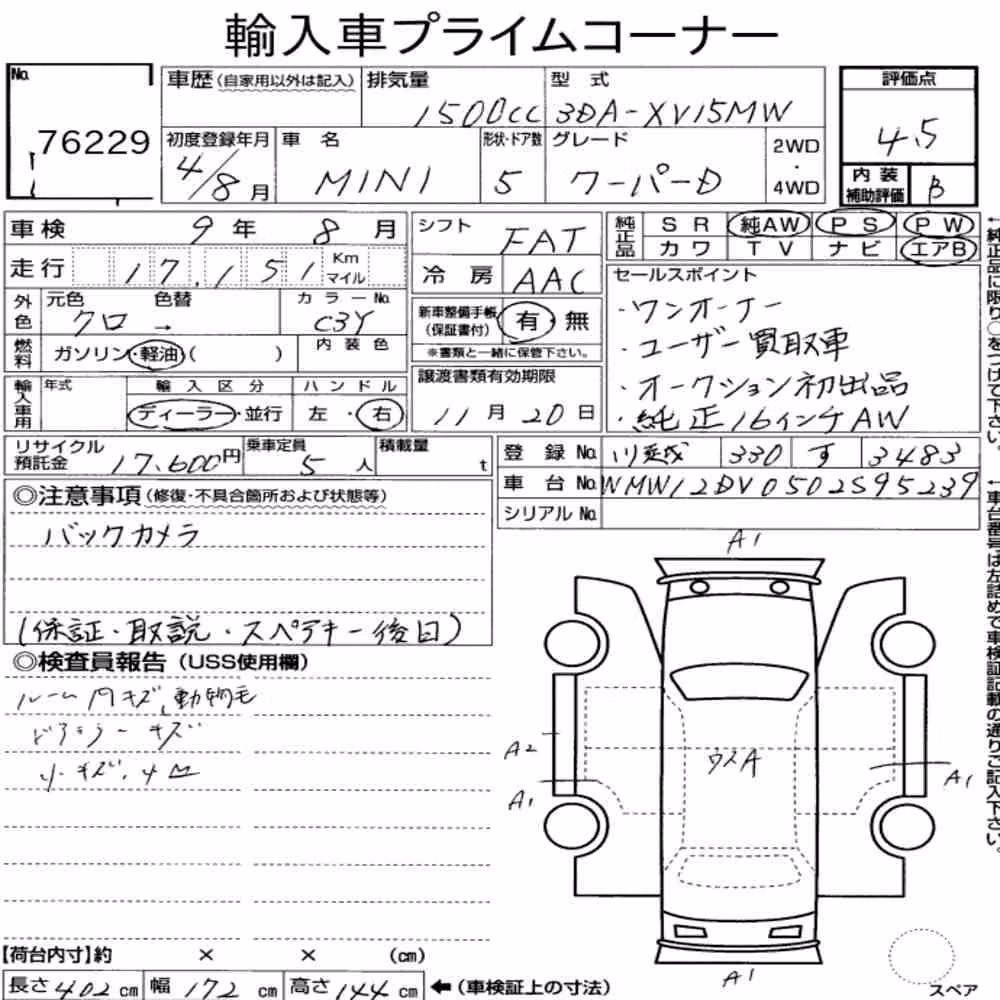 輸入車プライムコーナー
No.
76229
車歴(自家用以外は記入) 排気量 型式
1500cc 3DA-XV15MW
初度登録年月 車名 形状・ドア数 グレード 2WD・4WD
4/8月 MINI 5 クーパーD
評価点
4.5
内装補助評価 B
車検 9年 8月
走行 17,151 Km マイル
外色 元色 色替 カラーNo.
クロ → C34
燃料 ガソリン・軽油( ) 内装色
輸入車用 年式 輸入区分 ハンドル
ディーラー・並行 左・右
シフト FAT
冷房 AAC
新車整備手帳(保証書付) 有・無
※書類と一緒に保管下さい。
譲渡書類有効期限
11月20日
純正品 SR 純AW PS PW
カワ TV ナビ エアB
セールスポイント
・ワンオーナー
・ユーザー買取車
・オークション初出品
・純正16インチAW
←純正品に限り○をつけて下さい。
リサイクル預託金 17,600円 乗車定員 5人 積載量 t
登録No. 330 す 3483
車台No. WMW12DV0502S95239
シリアルNo.
←車台番号は左詰めで車検証記載の通りご記入下さい。
◎注意事項(修復・不具合箇所および状態等)
バックカメラ
(保証・取説・スペアキー後日)
◎検査員報告(USS使用欄)
ルーム内キズ、動物毛
ドアミラーキズ
小キズ、凹
A1
A2
A1
ウスA
A1
A1
スペア
【荷台内寸】約 × × (cm)
長さ402cm 幅172cm 高さ144cm ←(車検証上の寸法)